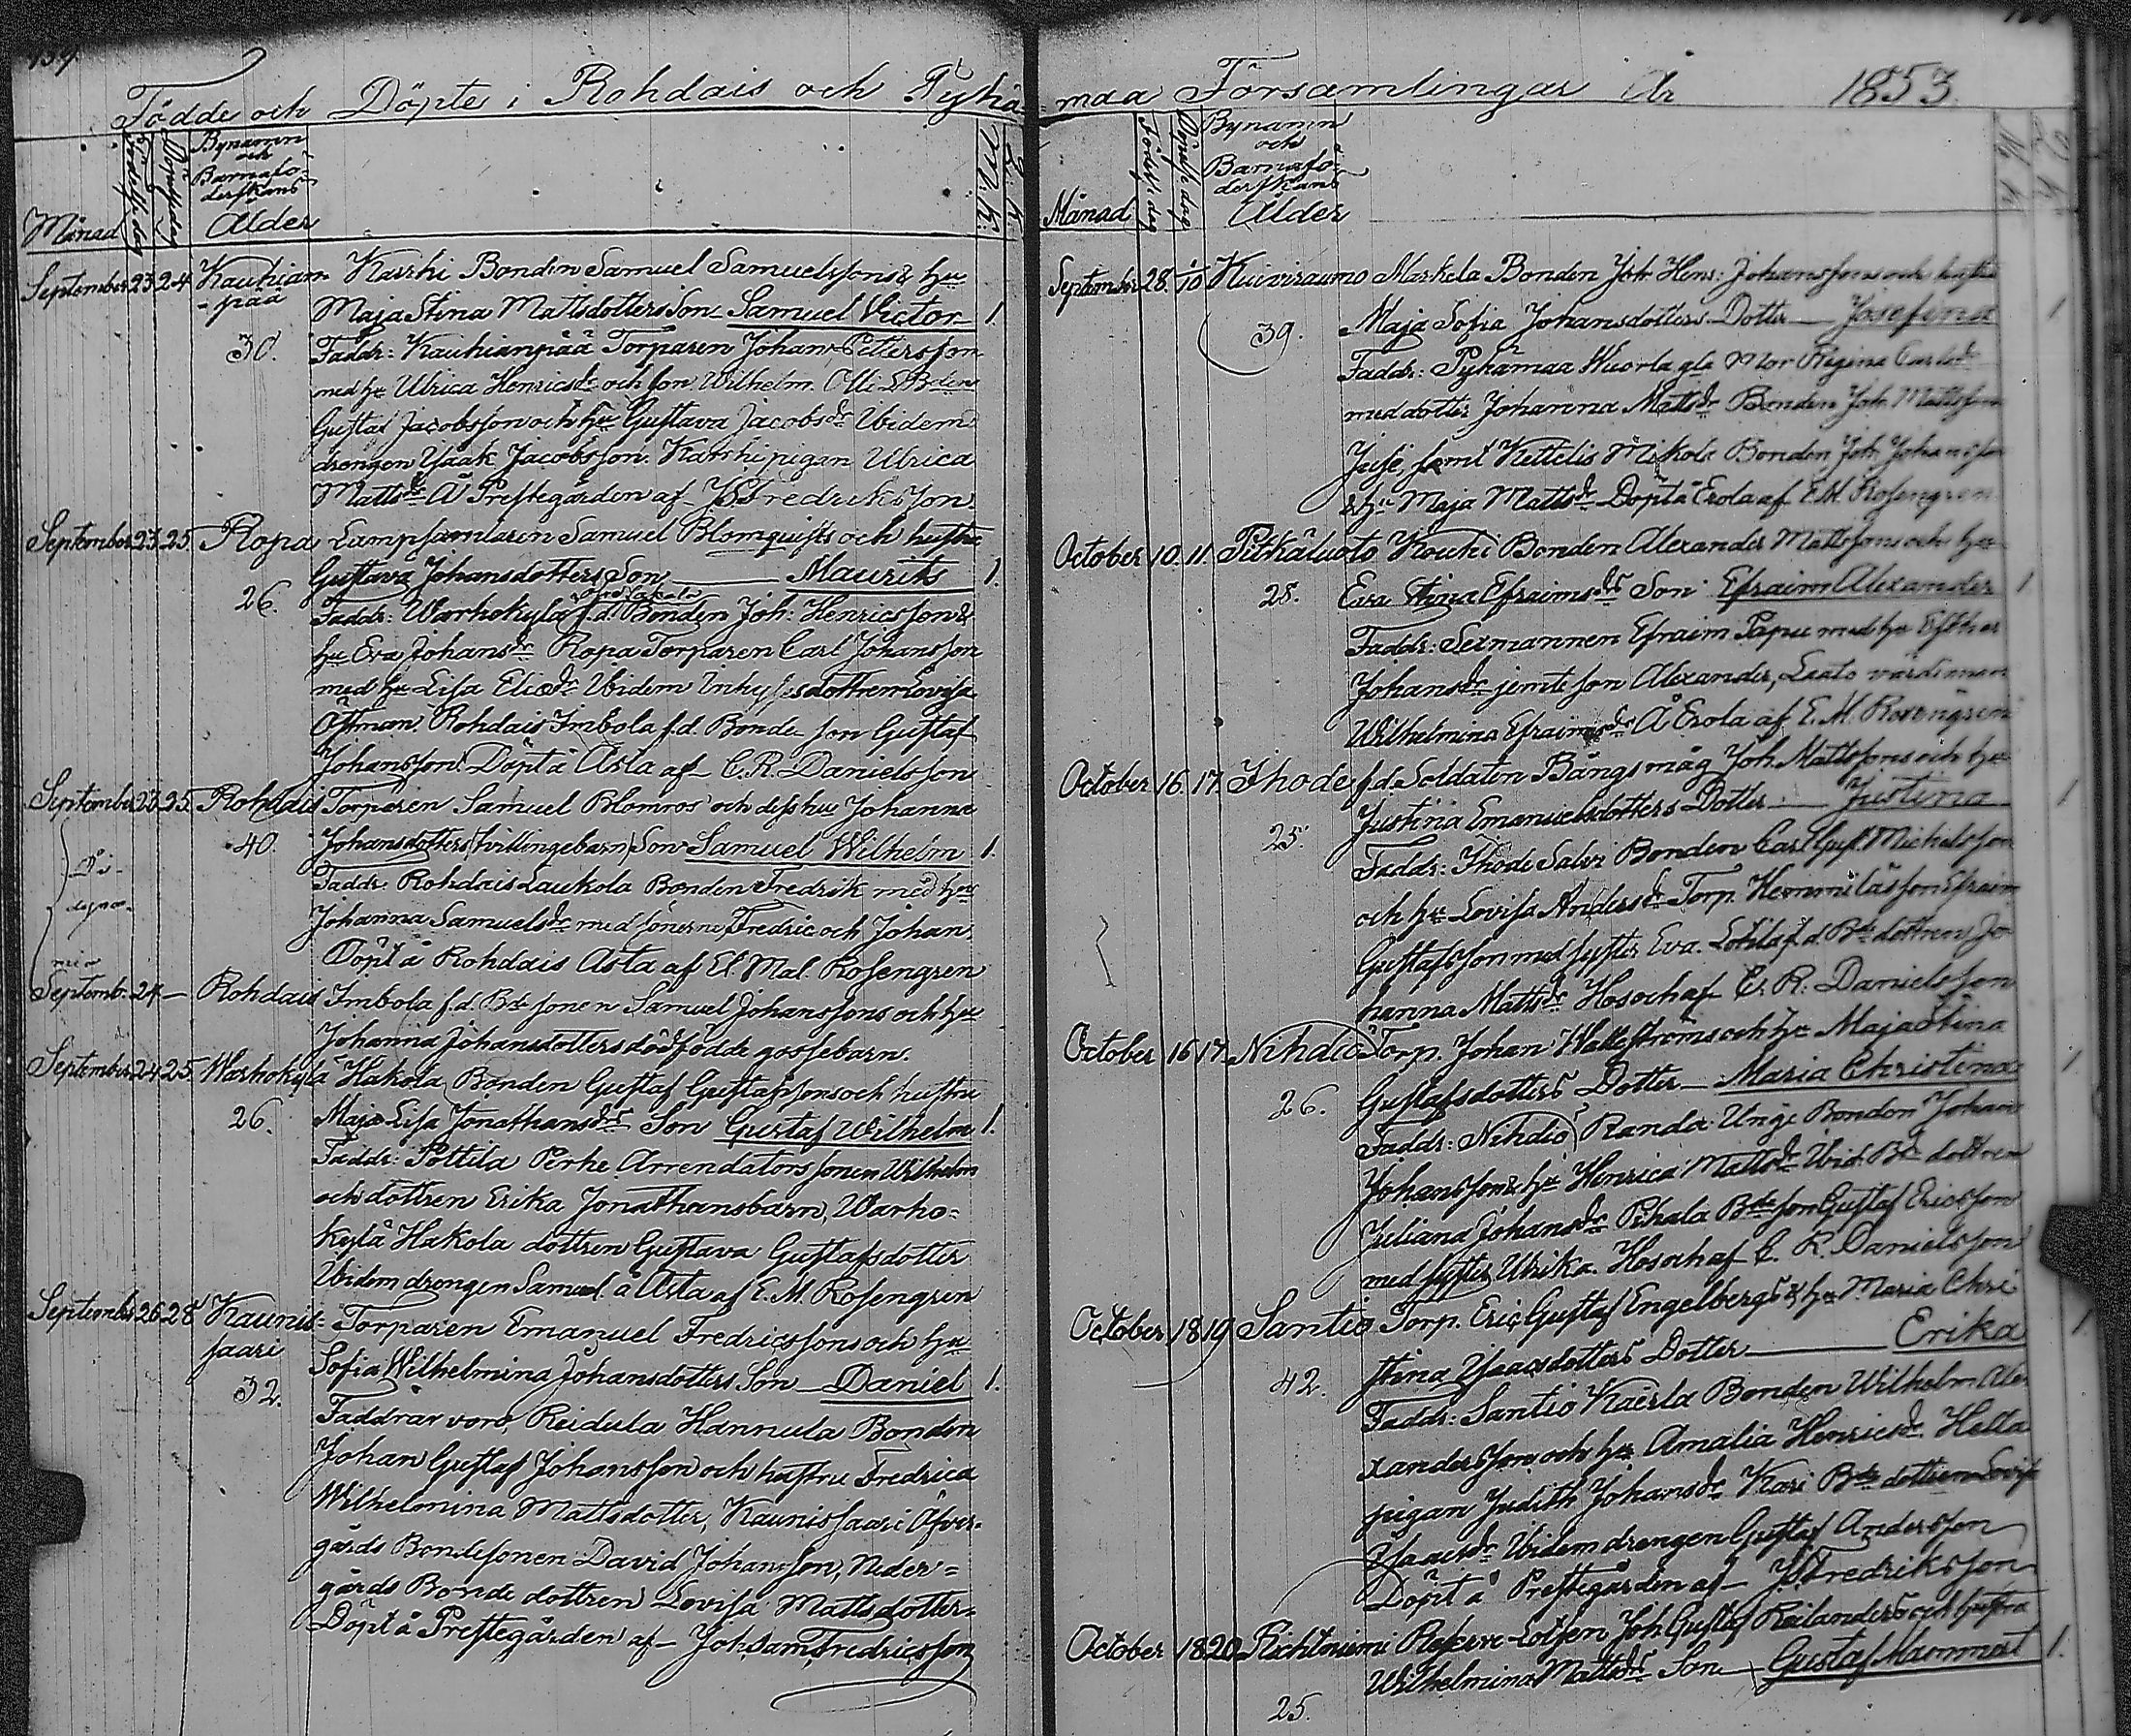 Födde och Döpte i Rohdais och Pyhä-
Månad
Födelse dag
Döpelse dag
Bynamn
och
Barnafö-
derskans
Ålder
M. K.
Q. K.
September 23 24 Kauhian- Karhi Bonden Samuel Samuelssons & hu
-pää Maja Stina Mattsdotters Son Samuel Victor 1.
30. Faddr: Kauhianpää Torparen Johan Pettersson
med hu Ulrica Henricsdr och son Wilhelm. Olli Bden
Gustaf Jacobsson och hu Gustava Jacobsdr Ibidem
drengen Isaak Jacobsson. Karhi pigan Ulrica
Mattsdr Å Prestegården af JS Fredriksson.
September 23 25 Ropa Lumpsamlaren Samuel Blomquists och hustru
Gustava Johansdotters Son Maurits 1.
26. Faddr: Warhokylä f.d. Bonden Joh: Henricsson &
hu Eva Johansdr Ropa Torparen Carl Johansson
med hu Lisa Eliedr Ibidem Inhyses dottren Lovisa
Öftman. Rohdais Imbola f.d. Bonde son Gustaf
Johansson. Döpt å Asta af C. R. Danielsson
September 23 25 Rohdais Torparen Samuel Blomros och dess hu Johanna
40. Johansdotters (tvillingebarn) Son Samuel Wilhelm 1.
Faddr: Rohdais Laukola Bonden Fredrik med hu
Johanna Samuelsdr med sönerne Fredric och Johan.
Döpt å Rohdais Asta af El. Mal. Rosengren
Septemb. 24 — Rohdais Imbola f.d. Bde sonen Samuel Johanssons och hu
Johanna Johansdotters dödfödde gossebarn.
September 24 25 Warhokylä Hakola Bonden Gustaf Gustafssons och hustru
26. Maja Lisa Jonathansdrs Son Gustaf Wilhelm 1.
Faddr: Pottila Perhe Arrendators sonen Wilhelm
och dottren Erika Jonathansbarn, Warho-
kylä Hakola dottren Gustava Gustafsdotter
Ibidem drengen Samuel. å Asta af E. M. Rosengren
September 26 28 Kaunis- Torparen Emanuel Fredricssons och hu
saari Sofia Wilhelmina Johansdotters Son Daniel 1.
32. Faddrar voro, Reidula Hannula Bonden
Johan Gustaf Johansson och hustru Fredrica
Wilhelmina Mattsdotter, Kaunissaari Öfver-
gårds Bondesonen David Johansson, Neder-
gårds Bonde dottren Lovisa Mattsdotter
Döpt å Prestegården af Joh Sam Fredricsson
maa Församlingar År 1853
Månad
Födelse dag
Döpelse dag
Bynamn
och
Barnafö-
derskans
Ålder
September 28. 1/10 Kuivirauma Markela Bonden Joh. Henr: Johanssons och hustru
39. Maja Sofia Johansdotters Dotter Josefina 1
Faddr: Pyhämaa Wuorla gla Mor Regina Carlsdr
med dotter Johanna Mattsdr Bonden Joh. Mattsson
Juse, samt Kettelis Mikola Bonden Joh. Johansson
& hu Maja Mattsdr Döpt å Erola af E. M. Rosengren.
October 10. 11. Pitkäluoto Kouhi Bonden Alexander Mattssons och hu
28. Eva Stina Efraimsdrs Son Efraim Alexander 1
Faddr: Sexmannen Efraim Papu med hu Esther
Johansdr jemte son Alexander, Laato värdinnan
Wilhelmina Efraimsdr Å Erola af E. M. Rosengren
October 16 17 Ihode f.d. Soldaten Bångs måg Joh. Mattssons och hu
25. Justina Emanuelsdotters Dotter Justina 1
Faddr: Ihode Salvi Bonden Carl Gust. Michelsson
och hu Lovisa Andersdr Torp. Hemmiläs son Efraim
Gustafsson med syster Eva. f.d. Bde dottren Jo-
hanna Mattsdr Hos och af C. R. Danielsson
October 16 17 Nihdiö Torp. Johan Wallströms och hu Maja Stina
26. Gustafsdotters Dotter Maria Christina 1
Faddr: Nihdiö Randa Unge Bonden Johan
Johansson & hu Henrica Mattsdr Ibid. Bde dottren
Juliana Johansdr Pihala Bde son Gustaf Ericsson
med syster Ulrika. Hos och af C. R. Danielsson
October 18 19 Santio Torp. Eric Gustaf Engelbergs & hu Maria Chri
42. stina Isaacsdotters Dotter Erika 1
Faddr: Santio Kaerla Bonden Wilhelm Ale-
xandersson och hu Amalia Henricsdr Hella
pigan Judith Johansdr Kari Bde dottren Lovisa
Isaacsdr Ibidem drengen Gustaf Andersson
Döpt å Prestegården af JS Fredriksson
October 18 20 Rihtniemi Reserve Lotsen Joh Gustaf Reilanders och hustru
Wilhelmina Mattsdrs Son Gustaf Mammert 1.
25.